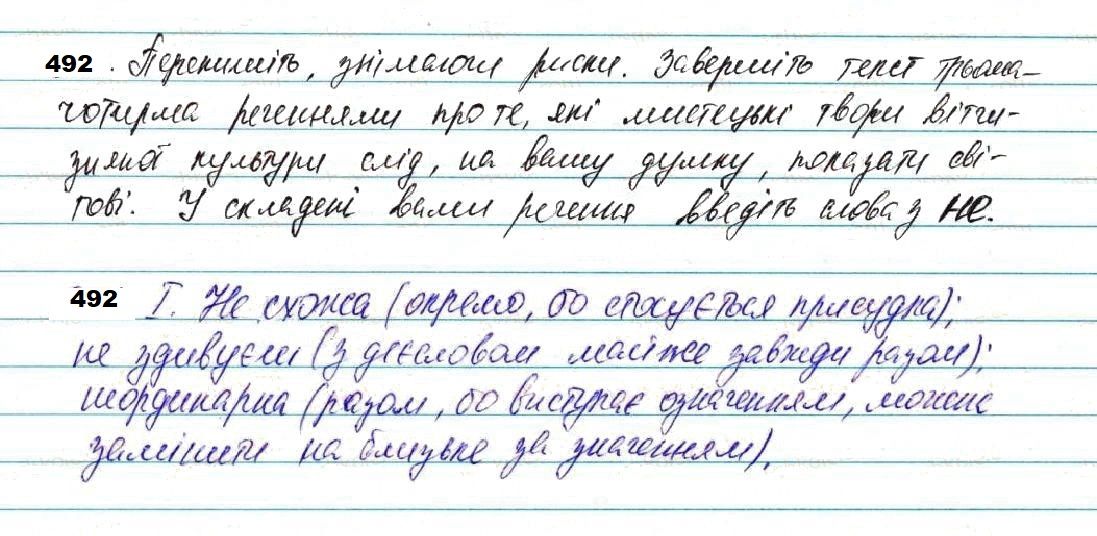 492 . Перепишіть, знімаючи риски. Завершіть текст трьома-
чотирма реченнями про те, які мистецькі твори вітчи-
зняної культури слід, на вашу думку, показати сві-
тові. У складені вами речення введіть слова з не.
492 І. Не схожа (окремо, бо стосується присудка);
не здивуєш (з дієсловом майже завжди разом);
неординарна (разом, бо виступає означенням, можна
замінити на близьке за значенням).